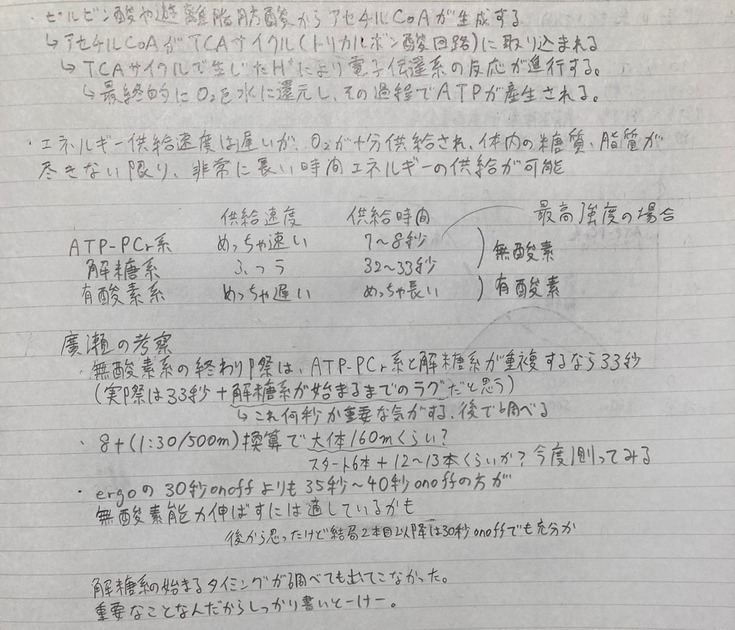 ピルビン酸や遊離脂肪酸からアセチルCoAが生成する
↳アセチルCoAがTCAサイクル(トリカルボン酸回路)に取り込まれる
↳TCAサイクルで生じたH⁺により電子伝達系の反応が進行する。
↳最終的にO₂を水に還元し、その過程でATPが産生される。
・エネルギー供給速度は遅いが、O₂が十分供給され、体内の糖質、脂質が
尽きない限り、非常に長い時間エネルギーの供給が可能
供給速度 供給時間 最高強度の場合
ATP-PCr系 めっちゃ速い 7~8秒
無酸素
解糖系 ふつう 32~33秒
有酸素系 めっちゃ遅い めっちゃ長い 有酸素
廣瀬の考察
・無酸素系の終わり際は、ATP-PCr系と解糖系が重複するなら33秒
(実際は33秒+解糖系が始まるまでのラグだと思う)
↳これ何秒か重要な気がする。後で調べる
・8+(1:30/500m)換算で大体160mくらい?
スタート6本+12~13本くらいか?今度測ってみる
・ergoの30秒onoffよりも35秒~40秒onoffの方が
無酸素能力伸ばすには適しているかも
後から思ったけど結局2本目以降は30秒onoffでも充分か
解糖系の始まるタイミングが調べても出てこなかった。
重要なことなんだからしっかり書いとーけー。